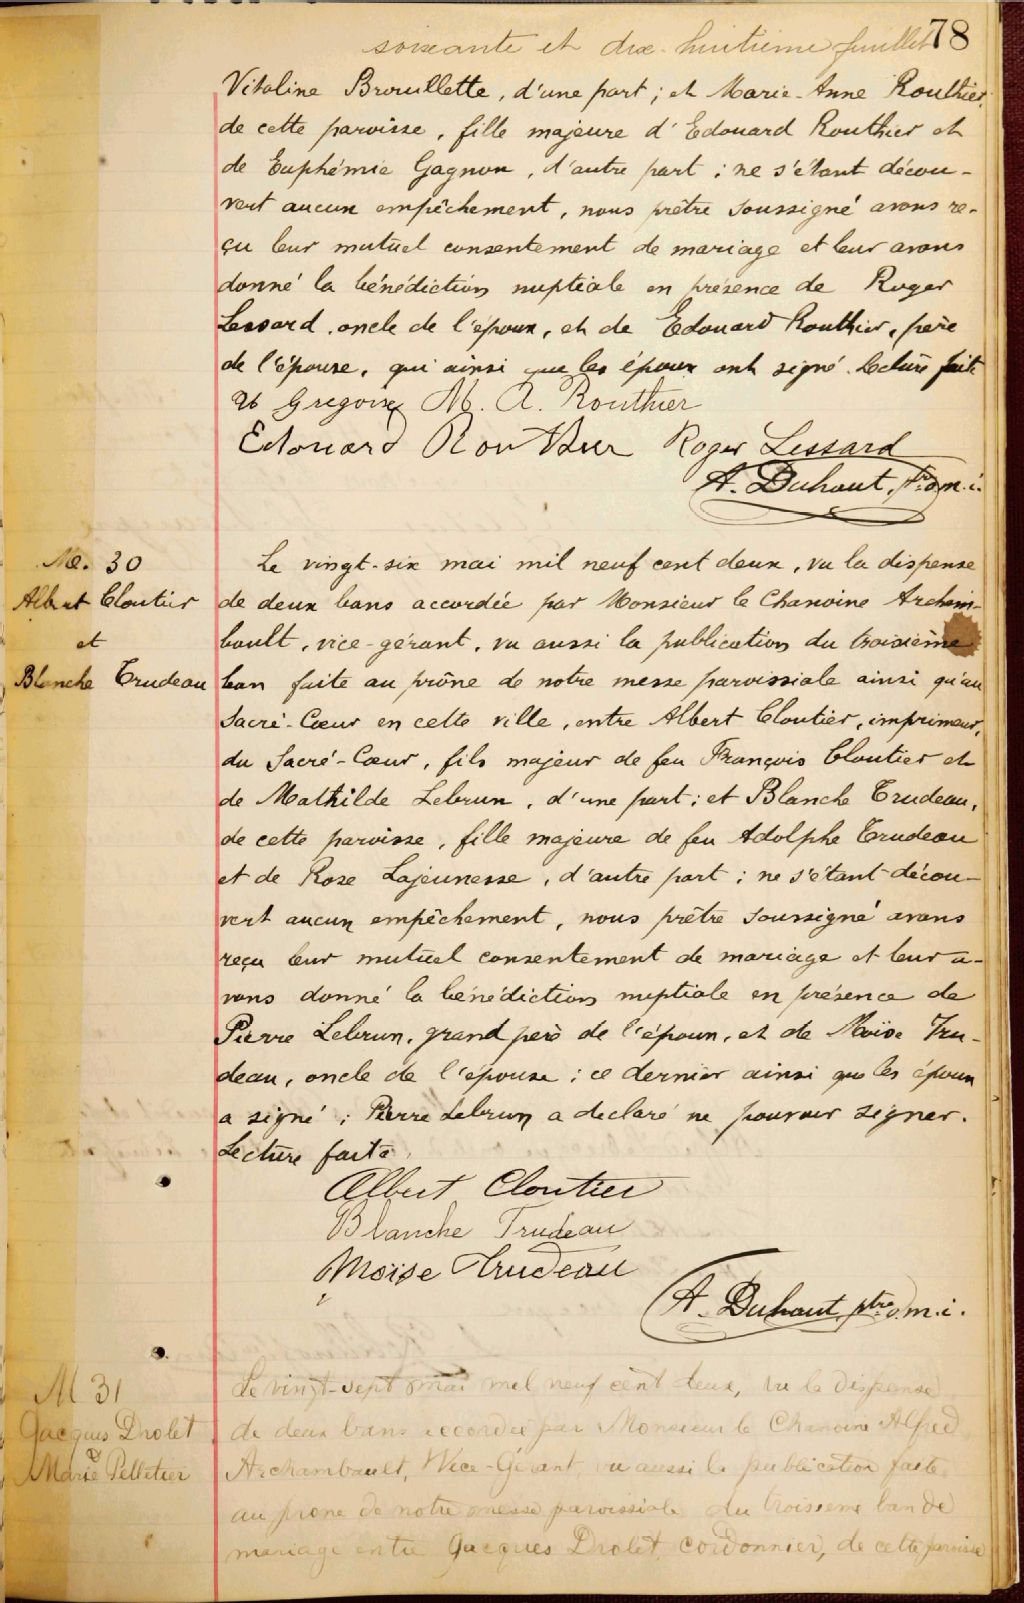 soixante et dix-huitième feuillet 78
Vitaline Brouillette, d'une part; et Marie-Anne Routhier,
de cette paroisse, fille majeure d'Edouard Routhier et
de Euphémie Gagnon, d'autre part; ne s'étant décou-
vert aucun empêchement, nous prêtre soussigné avons re-
çu leur mutuel consentement de mariage et leur avons
donné la bénédiction nuptiale en présence de Roger
Lessard, oncle de l'époux, et de Edouard Routhier, père
de l'épouse, qui ainsi que les époux ont signé. Lecture faite
Gregoire M. A. Routhier
Edouard Routhier Roger Lessard
A. Duhaut, ptr o.m.i.
M. 30
Albert Cloutier
et
Blanche Trudeau
Le vingt-six mai mil neuf cent deux, vu la dispense
de deux bans accordée par Monsieur le Chanoine Archam-
bault, vice-gérant, vu aussi la publication du troisième
ban faite au prône de notre messe paroissiale ainsi qu'au
Sacré-Cœur en cette ville, entre Albert Cloutier, imprimeur,
du Sacré-Cœur, fils majeur de feu François Cloutier et
de Mathilde Lebrun, d'une part; et Blanche Trudeau,
de cette paroisse, fille majeure de feu Adolphe Trudeau
et de Rose Lajeunesse, d'autre part; ne s'étant décou-
vert aucun empêchement, nous prêtre soussigné avons
reçu leur mutuel consentement de mariage et leur a-
vons donné la bénédiction nuptiale en présence de
Pierre Lebrun, grand père de l'époux, et de Moïse Tru-
deau, oncle de l'épouse; ce dernier ainsi que les époux
a signé; Pierre Lebrun a declaré ne pouvoir signer.
Lecture faite.
Albert Cloutier
Blanche Trudeau
Moïse Trudeau
A. Duhaut, ptre o.m.i.
M 31
Jacques Drolet
&
Marie Pelletier
Le vingt-sept mai mil neuf cent deux, vu la dispense
de deux bans accordée par Monsieur le Chanoine Alfred
Archambault, Vice-Gérant vu aussi la publication faite
au prone de notre messe paroissiale du troisieme ban de
mariage entre Jacques Drolet, cordonnier, de cette paroisse